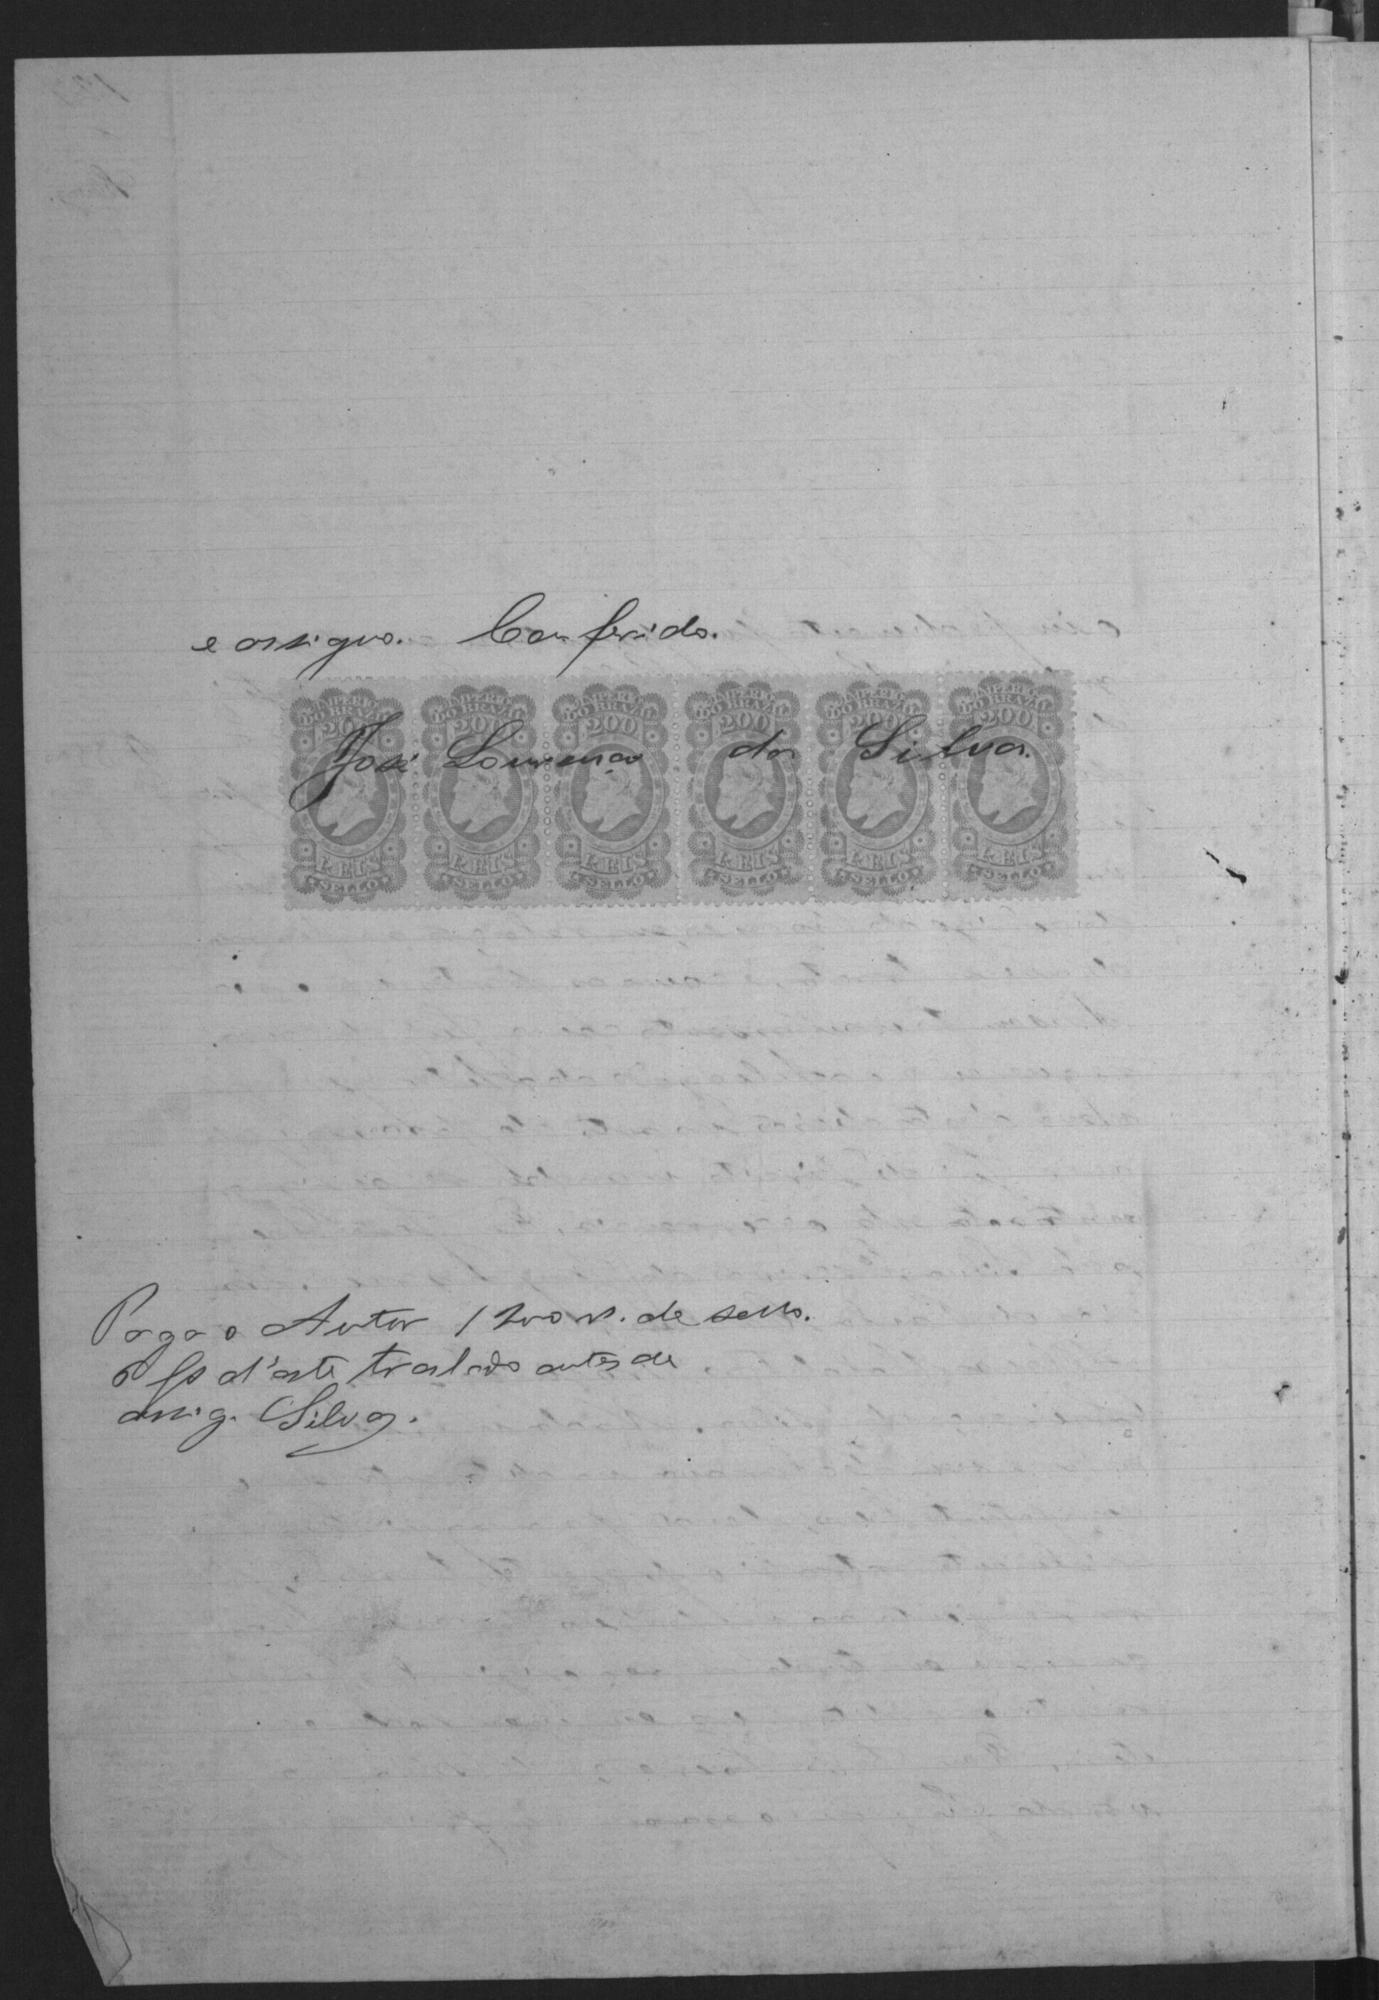 e assigno. Conferido.
IMPERIO DO BRAZIL 200 REIS SELLO
IMPERIO DO BRAZIL 200 REIS SELLO
IMPERIO DO BRAZIL 200 REIS SELLO
IMPERIO DO BRAZIL 200 REIS SELLO
IMPERIO DO BRAZIL 200 REIS SELLO
IMPERIO DO BRAZIL 200 REIS SELLO
José Lourenço da Silva.
Paga o Autor 1200 rs. de sello.
d'este traslado antes de
assig. Silva.